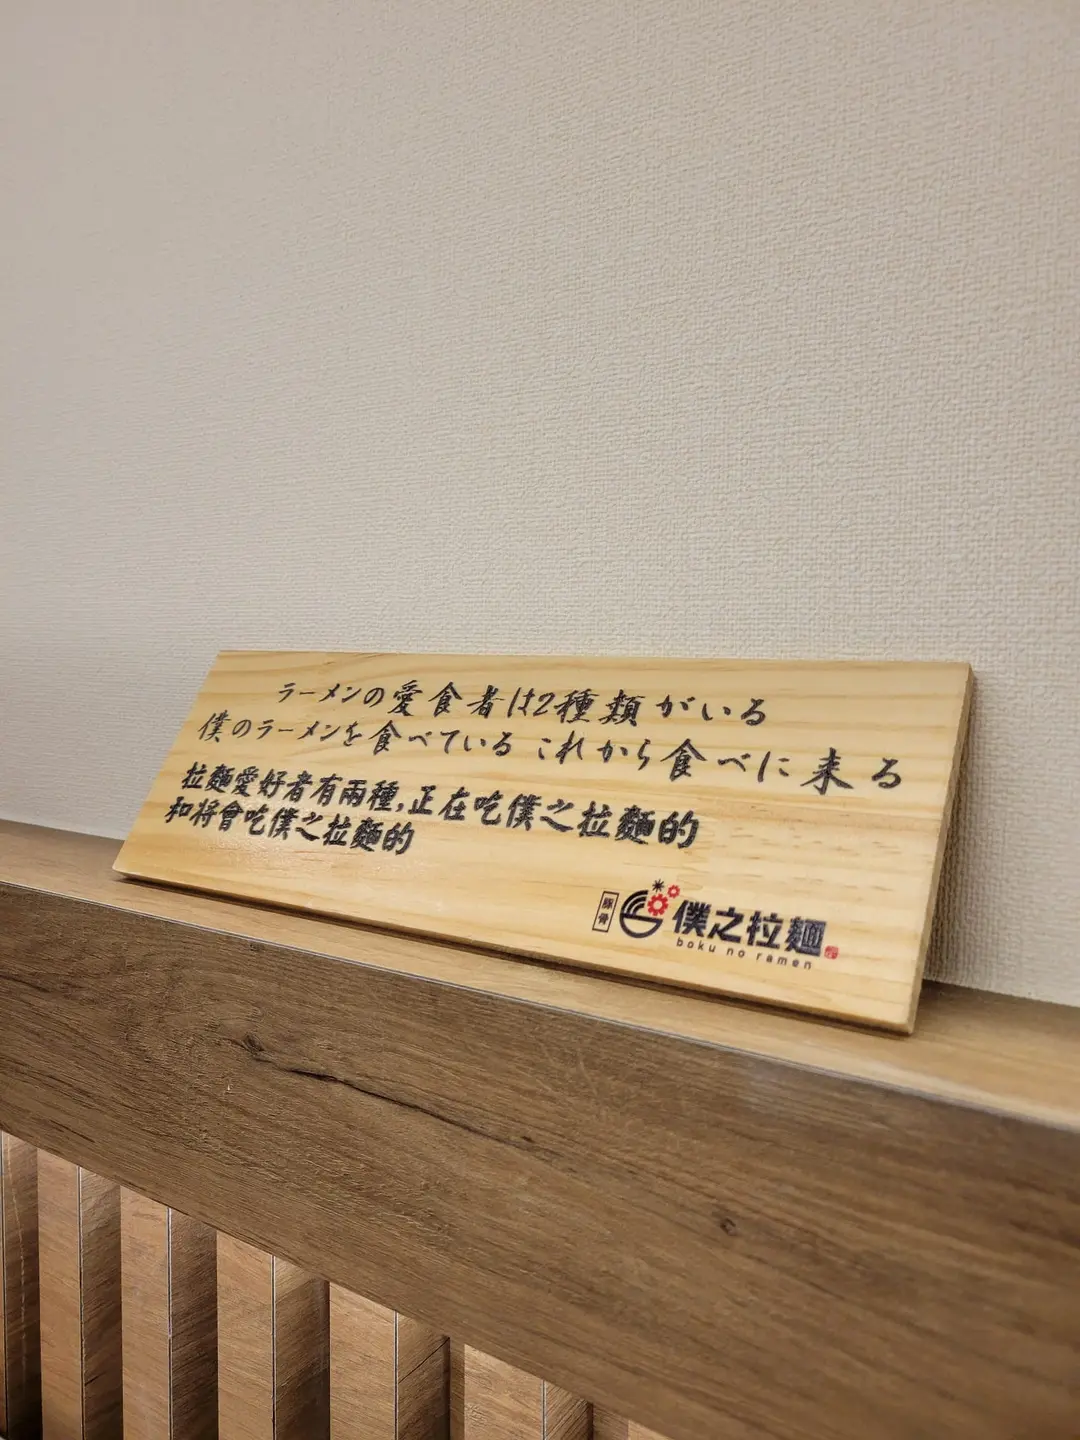 ラーメンの愛食者は2種類がいる
僕のラーメンを食べている これから食べに来る
拉麵愛好者有兩種,正在吃僕之拉麵的
和将會吃僕之拉麵的
豚骨
僕之拉麵
boku no ramen